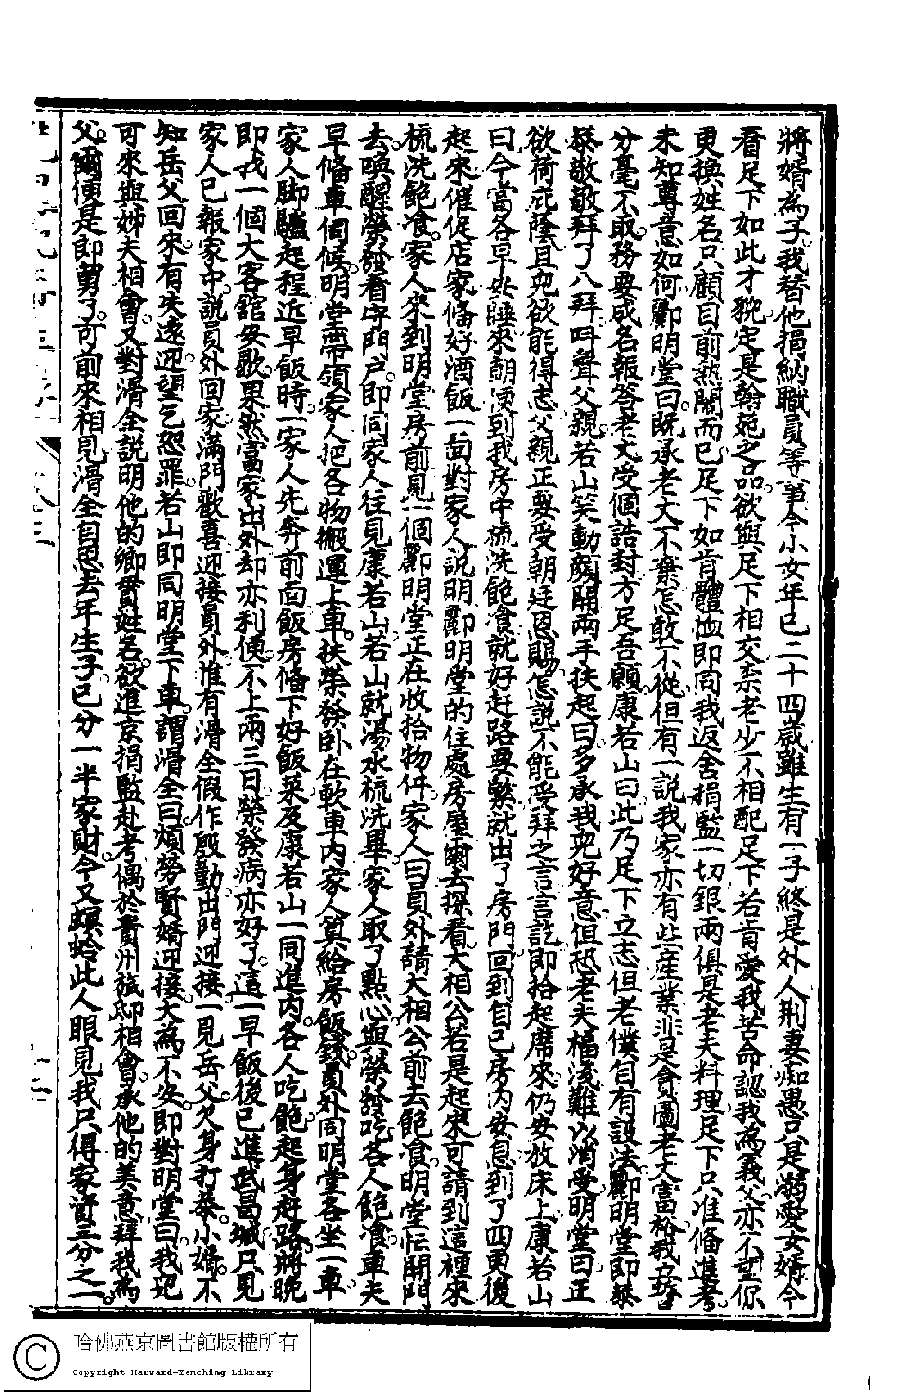 將婿為子我替他捐納職員等事今小女年已二十四歲雖生有一子終是外人荆妻痴愚只是溺愛女婿今
看足下如此才貌定是翰苑之品欲與足下相交柰老少不相配足下若肯愛我苦命認我為義父亦不望你
更換姓名只顧目前熱鬧而已足下如肯體恤即同我返舍捐監一切銀兩俱是老夫料理足下只准偹進考
未知尊意如何酈明堂曰既承老丈不棄怎敢不從但有一說我家亦有些產業非是貪圖老丈富裕我
分毫不取務要成名報答老丈受個誥封方足吾願康若山曰此乃足下立志但老僕自有設法酈明堂即恭
恭敬敬拜了八拜呌聲父親若山笑動顏開兩手扶起曰多承我兒好意但恐老夫福淺難以消受明堂曰正
欲荷庇蔭且兒欲能得志父親正要受朝廷恩賜怎說不能受拜之言言訖即抬起席來仍安放床上康若山
曰今當各早些睡來朝便到我房中梳洗飽食就好赶路要緊就出了房門回到自己房内安息到了四更後
起來催促店家偹好酒飯一面對家人說明酈明堂的住處房屋爾去探看大相公若是起來可請到這裡來
梳洗飽飡家人來到明堂房前見一個酈明堂正在收拾物件家人曰員外請大相公前去飽飡明堂忙開門
去喚醒榮發看守門户即同家人往見康若山若山就湯水梳洗畢家人取了點心與榮發吃各人飽食車夫
早偹車個候明堂帶領家人把各物搬運上車扶榮發卧在軟車内家人算給房飯錢員外同明堂各坐一車
家人脚驢起程近早飯時一家人先奔前面飯房偹下好飯菜及康若山一同進内各人吃飽起身赶路將晚
即找一個大客舘安歇果然富家出外却亦利便不上兩三日榮發病亦好了這一早飯後已進武昌城只見
家人已報家中說員外回家滿門歡喜迎接員外惟有滑全假作殷勤出門迎接一見岳父欠身打恭小婿不
知岳父回來有失遠迎望乞恕罪若山即同明堂下車謂滑全曰煩勞賢婿迎接大為不安即對明堂曰我兒
可來與姊夫相會又對滑全說明他的鄉貫姓名欲進京捐監赴考偶於貴州旅邸相會承他的美意拜我為
父爾便是郎舅了可前來相見滑全自思去年生子已分一半家財今又螟蛉此人眼見我只得家資三分之一
哈佛燕京圖書館版權所有
Copyright Harvard-Yenching Library